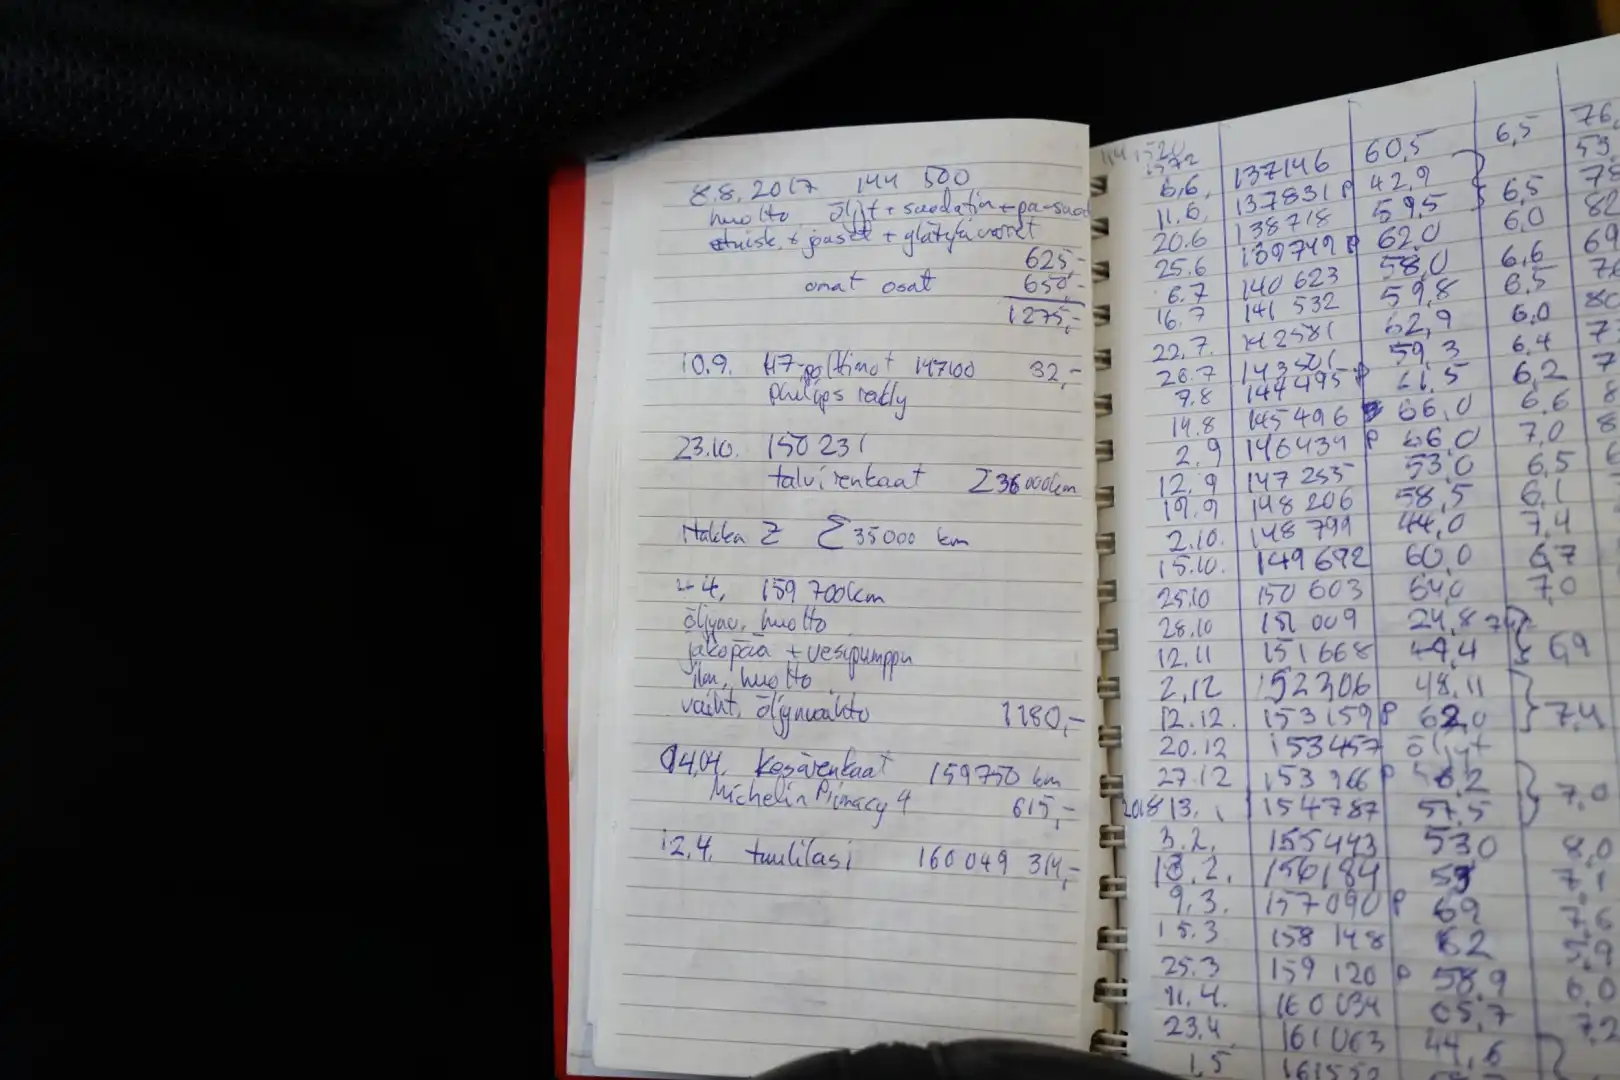 8.8.2017 144 500
huolto öljyt + suodatin + pa-suod
+ puset +
625,-
omat osat 650,-
1275,-
10.9. H7-polttimot 147100 32,-
Philips rally
23.10. 150 231
talvirenkaat Σ36000km
Hakka Z Σ 35000 km
4. 159 700km
öljyav. huolto
jakopää + vesipumppu
ilm. huolto
vaiht. öljynvaihto 1180,-
04.04. Kesärenkaat 159750 km
Michelin Primacy 4 615,-
12.4. tuulilasi 160 049 314,-
6.6. 137146 60,5 6,5 76,
11.6. 137831 P 42,9 53,
20.6 138718 59,5 6,5 78
25.6 139749 P 62,0 6,0 82
6.7 140 623 58,0 6,6 69
16.7 141 532 59,8 6,5
22.7. 142581 62,9 6,0 80
26.7 143501 59,3 6,4 7
9.8 144495 P 61,5 6,2 7
14.8 145 496 66,0 6,6 8
2.9 146434 P 66,0 7,0 8
12.9 147 255 53,0 6,5
19.9 148 206 58,5 6,1
2.10. 148 799 44,0 7,4
15.10. 149 692 60,0 6,7
25.10 150 603 64,0 7,0
28.10 151 009 24,8
12.11 151 668 49,4 6,9
2.12 152306 48,11
12.12. 153159 P 62,0 7,4
20.12 153457 öljyt
27.12 153 966 P 7,0
2018 13.1 154787 57,5
3.2. 155443 53,0 8,0
18.2. 156184 7,1
9.3. 157090 P 69 7,6
15.3 158 148 62 5,9
25.3 159 120 P 58,9 6,0
11.4. 160034 65,7 7,2
23.4 161063 44,6
1.5 161552